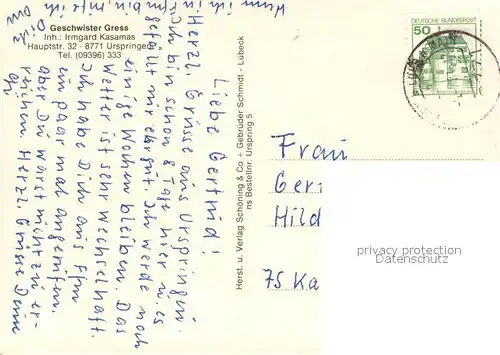 Geschwister Gress
Inh.: Irmgard Kasamas
Hauptstr. 32 · 8771 Urspringen
Tel. (09396) 333
Liebe Gertrud!
Herzl. Grüsse aus Urspringen.
Ich bin schon 8 Tage hier u. es
gefällt mir sehr gut. Ich werde noch
einige Wochen bleiben. Das
Wetter ist sehr wechselhaft.
Ich habe Dich aus Ffm
ein paar mal angerufen.
aber Du warst nicht zu er-
reichen. Herzl. Grüsse Deine
Wenn ich in bin, rufe ich
Dich an
Herst. u. Verlag Schöning & Co + Gebrüder Schmidt · Lübeck
ns Bestellnr. Urspring 5
DEUTSCHE BUNDESPOST
50
Frau
Ger
Hild
75 Ka
privacy protection
Datenschutz